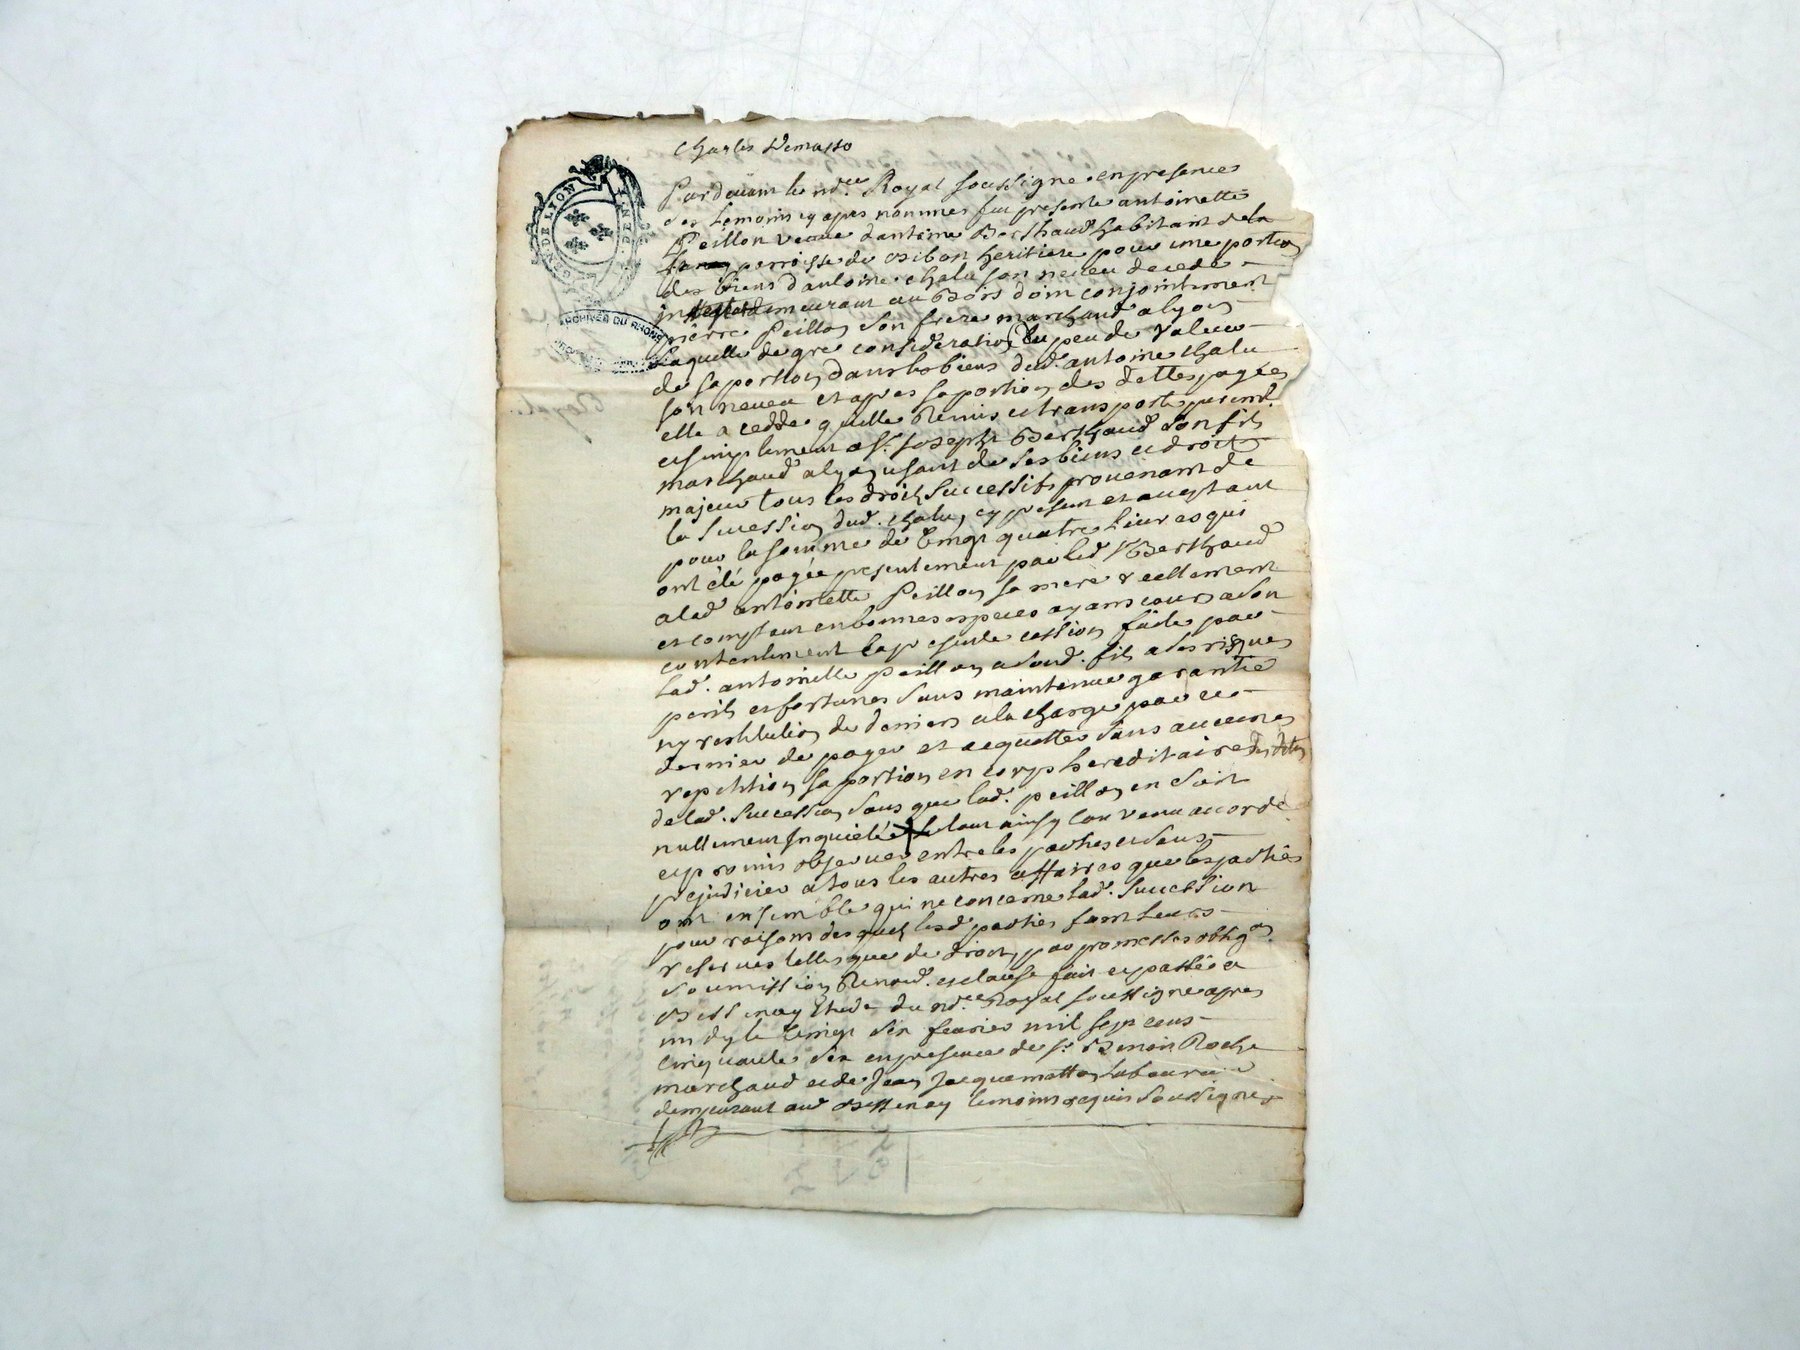 Charles Demasso
GEN. DE LYON
ARCHIVES DU RHONE
Pardevant le nore Royal soussigne en presences
des temoins cy apres nommes fut presente antoinette
Peillon veuve dantoine Berthaud habitant de la
perroisse de heritiere pour une portion
des biens dantoine chalu son neveu decede
demeurant au Bois doin conjointement
pierre Peillon son frere marchand a lyon
Laquelle de gre consideration du peu de valeur
de sa portion dans les biens dud. antoine chalu
son neveu et apres sa portion des dettes payées
elle a cedde quitte Remis et transporte purem.t
et simplement a Sr. joseph Berthaud son fils
marchand a lyon usant de ses biens et droits
majeur tous les droits successifs provenant de
la sucession dud. chalu, cy present et aceptant
pour la somme de vingt quatre Livres qui
ont été payée presentement par led. Sr Berthaud
a lad. antoinette Peillon sa mere reellement
et comptant en bonnes especes ayant cours a son
contentement la presente cession faite par
lad. antoinette peillon a sond. fils a ses risques
perils et fortunes sans maintenue garantie
ny restitution de deniers a la charge par ce
dernier de payer et acquitter sans aucunes
repetition sa portion en corps hereditaire des dettes
de lad. succession sans que lad. peillon en soit
nullement inquietée le tout ainsy convenu accordé
et promis observer entre les parties et sans
prejudicier a tous les autres affaires que les parties
ont ensemble qui ne concerne lad. succession
pour raisons desquels lesd. parties font leurs
reserves telles que de droit, par promesses oblig.on
soumission Renond. et clause fait et passé a
Bessenay Etude du nore Royal soussigne apres
midy le vingt six fevrier mil sept cens
cinquante six en presence de Sr. Benoit Roche
marchand et de Jean Jacquemetton laboureur
demeurant aud. Bessenay temoins requis soussignés